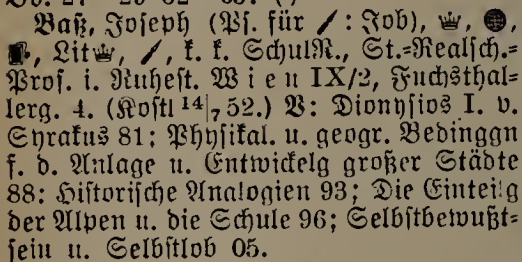 Baß, Joseph (Ps. für : Job),
Lit , k. k. SchulR., St.=Realsch.=
Prof. i. Ruhest. Wien IX/2, Fuchsthal=
lerg. 4. (Kostl 14|7 52.) V: Dionysios I. v.
Syrakus 81; Physikal. u. geogr. Bedinggn
f. d. Anlage u. Entwickelg großer Städte
88; Historische Analogien 93; Die Einteilg
der Alpen u. die Schule 96; Selbstbewußt=
sein u. Selbstlob 05.